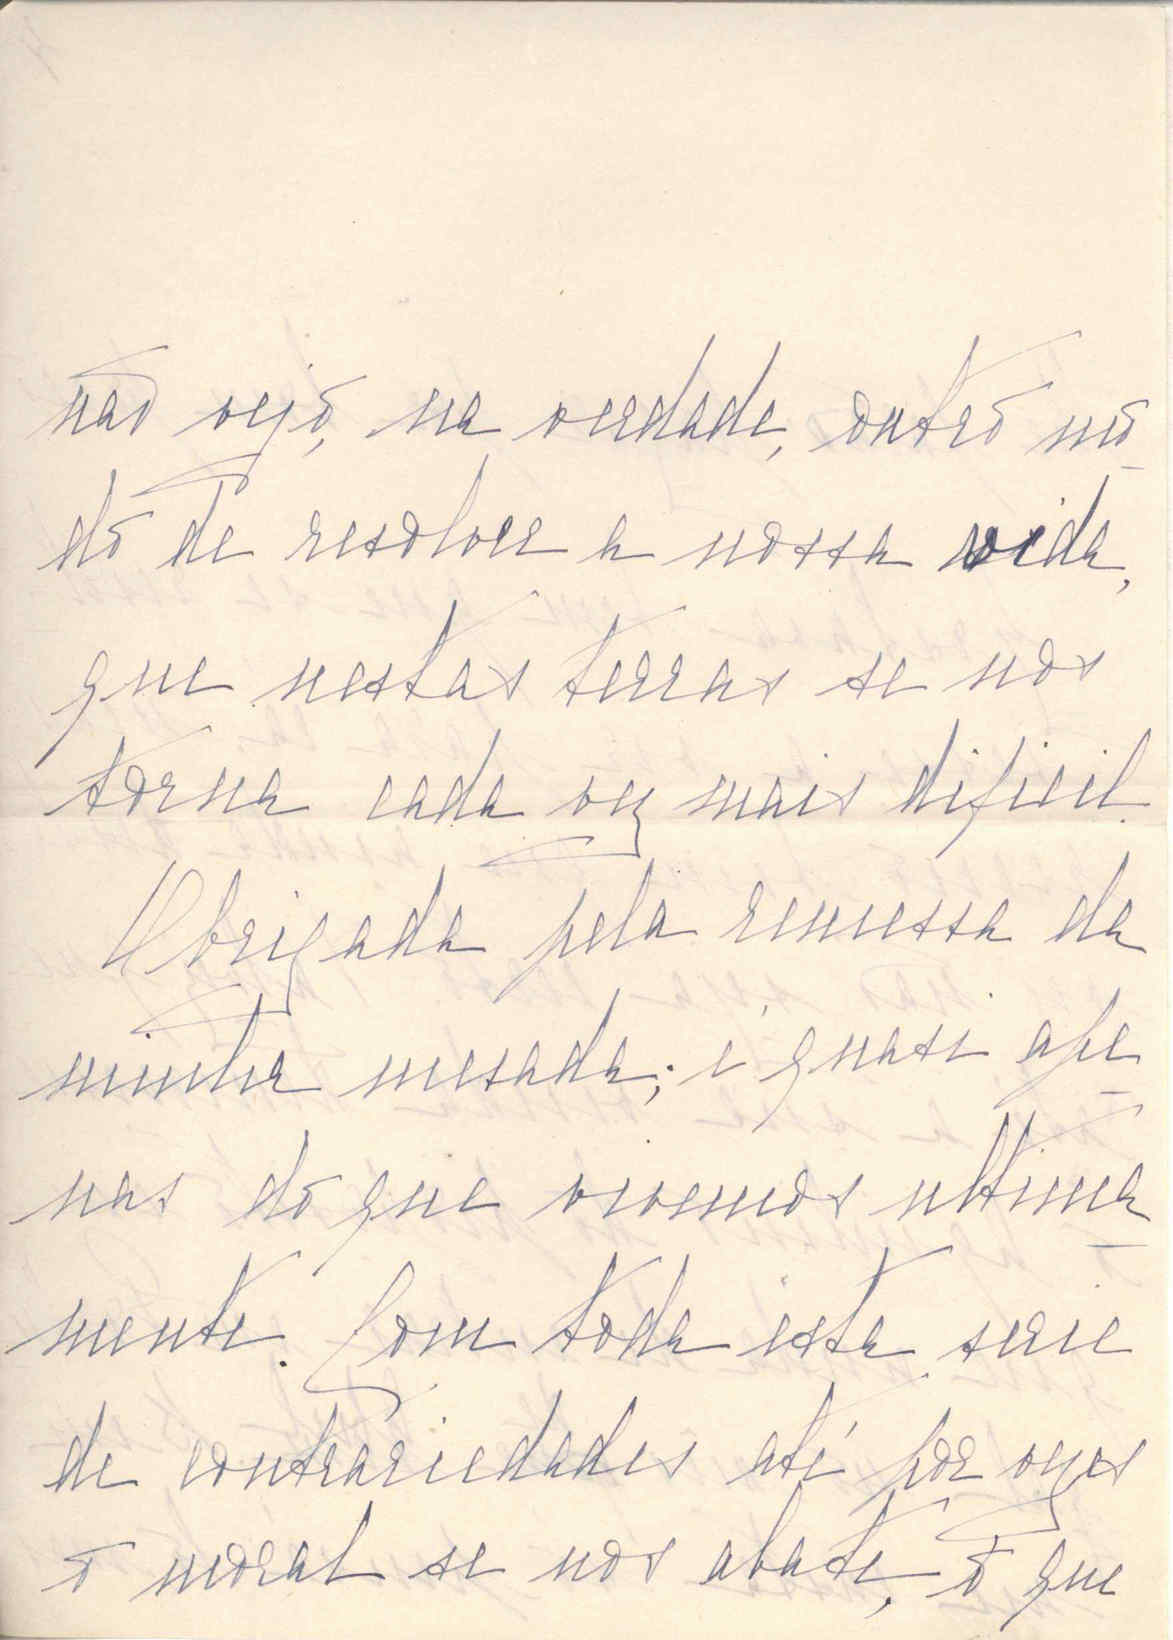 não vejo, na verdade, outro mo-
do de resolver a nossa vida,
que nestas terras se nos
torna cada vez mais dificil.
Obrigada pela remessa da
minha mesada; é quasi ape-
nas do que vivemos ultima-
mente. Com toda esta serie
de contrariedades até por vezes
o moral se nos abate, o que